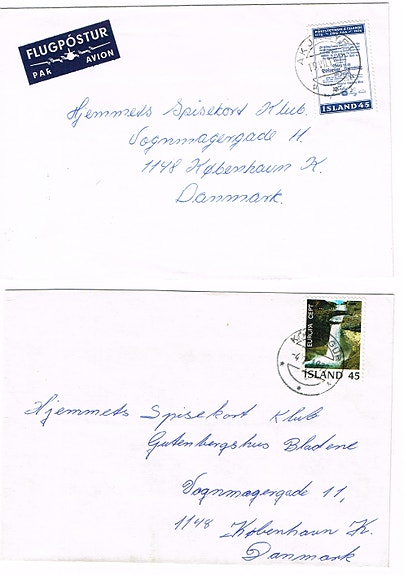 FLUGPÓSTUR
PAR AVION
ÍSLAND 45
Hjemmets Spisekort Klub.
Vognmagergade 11.
1148 København K.
Danmark.
EUROPA CEPT
ÍSLAND 45
Hjemmets Spisekort Klub
Gutenbergshus Bladene
Vognmagergade 11,
1148 København K.
Danmark